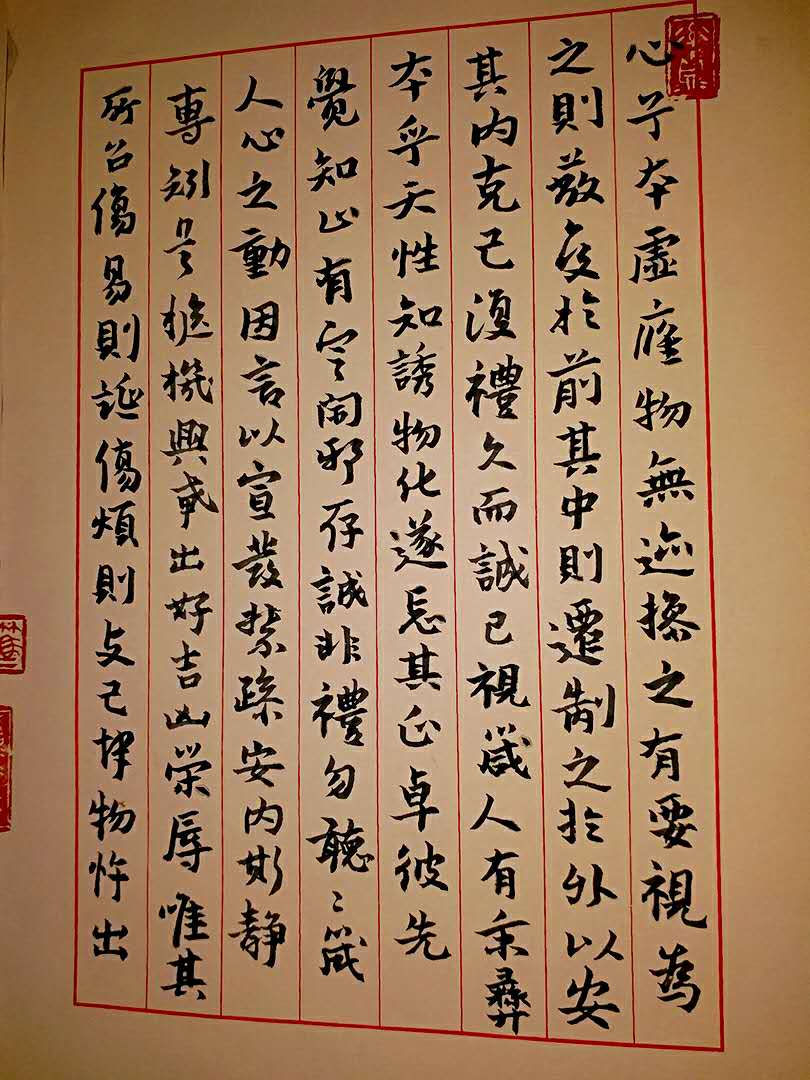 心兮本虛應物無迹操之有要視為
之則蔽交於前其中則遷制之於外以安
其內克己復禮久而誠已視箴人有秉彝
本乎天性知誘物化遂忘其正卓彼先
覺知止有定閑邪存誠非禮勿聽〻箴
人心之動因言以宣發禁躁安內斯靜
專矧是樞機興戎出好吉凶榮辱唯其
所召傷易則誕傷煩則支己肆物忤出